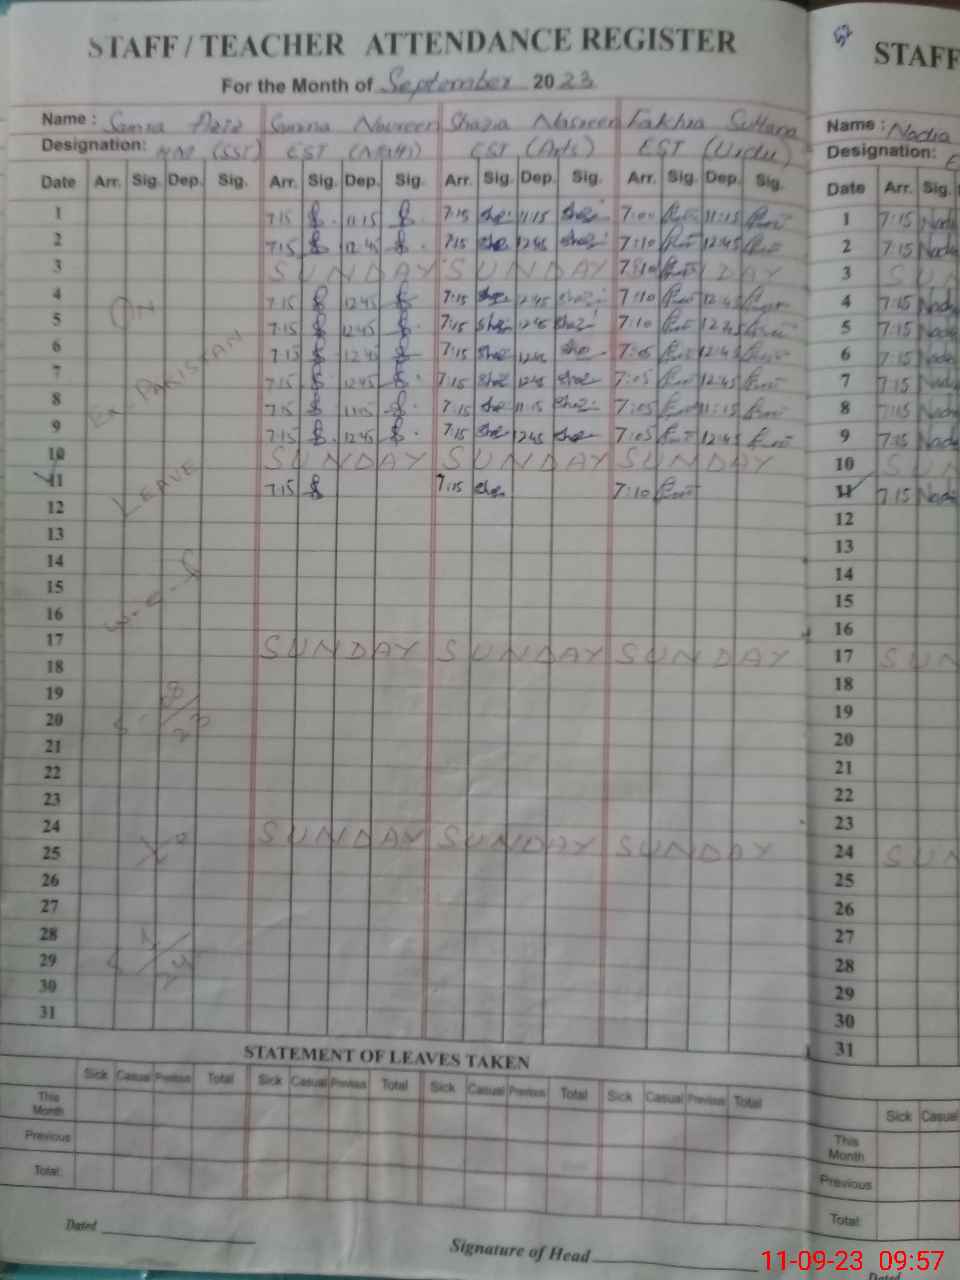 STAFF / TEACHER ATTENDANCE REGISTER
For the Month of September 2023
Name : Samra Aziz Samina Navreen Shazia Nasreen Fakhra Sultana
Designation: HM (SST) EST (Math) EST (Arts) EST (Urdu)
Date Arr. Sig. Dep. Sig. Arr. Sig. Dep. Sig. Arr. Sig. Dep. Sig. Arr. Sig. Dep. Sig.
1 7:15 11:15 7:15 She 11:15 7:00 11:15
2 7:15 12:45 7:15 She 12:45 7:10 12:45
3 SUNDAY SUNDAY 7:10 DAY
4 ON 7:15 12:45 7:15 12:45 7:10 12:45
5 7:15 12:45 7:15 12:45 7:10 12:45
6 Ex-PAKISTAN 7:15 12:45 7:15 12:45 7:05 12:45
7 7:15 12:45 7:15 12:45 7:05 12:45
8 7:15 11:15 7:15 11:15 7:05 11:15
9 7:15 12:45 7:15 12:45 7:05 12:45
10 SUNDAY SUNDAY SUNDAY
11 LEAVE 7:15 7:15 She 7:10
12
13
14
15
16 w-e-f
17 SUNDAY SUNDAY SUNDAY
18
19
20
21
22
23
24 SUNDAY SUNDAY SUNDAY
25 To
26
27
28
29
30
31
STATEMENT OF LEAVES TAKEN
Sick Casual Previous Total Sick Casual Previous Total Sick Casual Previous Total Sick Casual Previous Total
This Month
Previous
Total:
Dated
Signature of Head
52
STAFF
Name : Nadia
Designation: E
Date Arr. Sig.
1 7:15 Nadi
2 7:15 Nadi
3 SUN
4 7:15 Nadi
5 7:15 Nadi
6 7:15 Nadi
7 7:15 Nadi
8 7:15 Nadi
9 7:15 Nadi
10 SUN
11 7:15 Nadi
12
13
14
15
16
17 SUN
18
19
20
21
22
23
24 SUN
25
26
27
28
29
30
31
Sick Casual
This Month
Previous
Total:
Dated
11-09-23 09:57